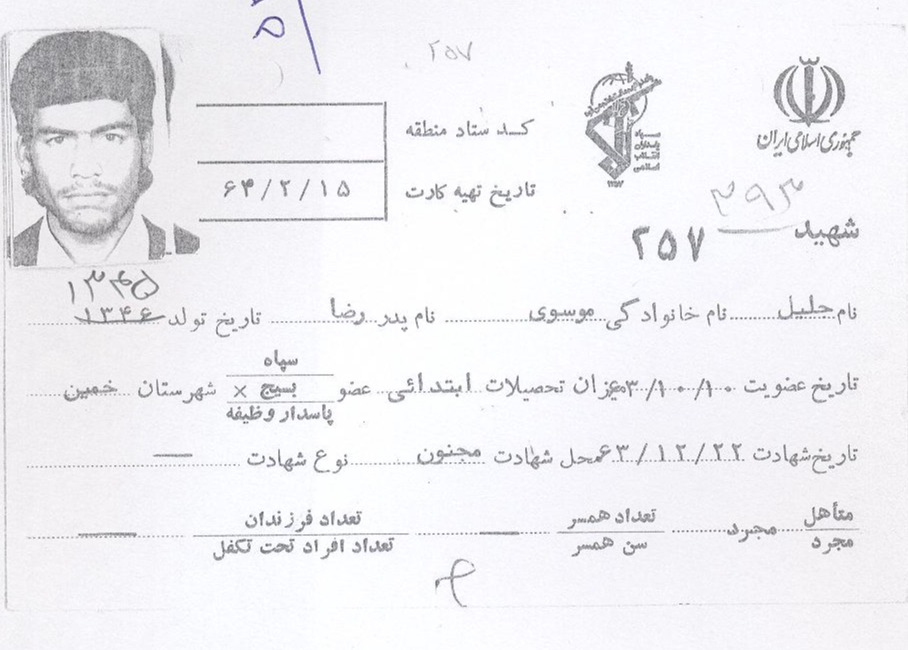 ۲۵۷
جمهوری اسلامی ایران
سپاه
پاسداران
انقلاب
اسلامی
۱۳۵۷
کد ستاد منطقه
تاریخ تهیه کارت ۶۴/۲/۱۵
۳۹۳
شهید ۲۵۷
۱۳۴۵
نام جلیل نام خانوادگی موسوی نام پدر رضا تاریخ تولد ۱۳۴۶
تاریخ عضویت ۶۳/۱۰/۱۰ میزان تحصیلات ابتدائی عضو سپاه
بسیج ×
پاسدار وظیفه شهرستان خمین
تاریخ شهادت ۶۳/۱۲/۲۲ محل شهادت مجنون نوع شهادت —
متأهل
مجرد مجرد تعداد همسر
سن همسر — تعداد فرزندان
تعداد افراد تحت تکفل —